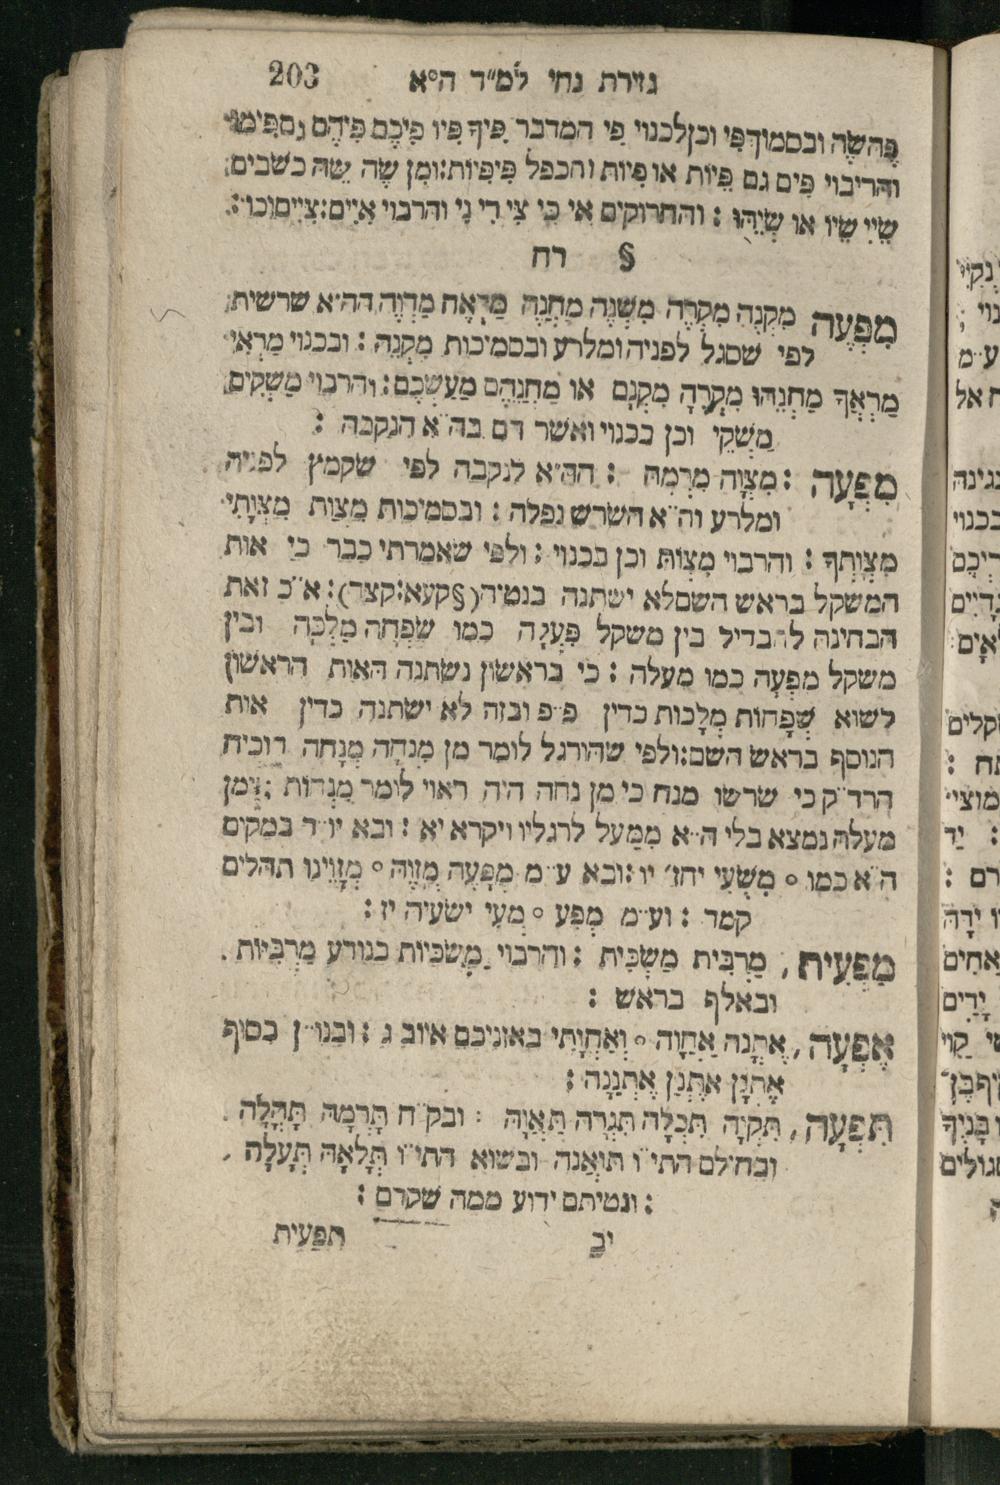 גזירת נחי למ״ד ה״א 203
פֶּהשֶׂה ובסמוך פִּי וכן לכנוי פִּי המדבר פִּיךָ פִּיו פִּיכֶם פִּיהֶם
והריבוי פִּים גם פִּיוֹת או פֵיוֹת והכפל פִּיפִיּוֹת: ומן שֶׂה שֵׂה כשבים:
שֵׂיִי שֵׂיוֹ או שְׂיֵהוּ : והחרוקים אִי כִּי צִי רִי נִי והרבוי אִיִּים: צִיִּים וכו׳:
§ רח
מִפְעֶה מִקְנֶה מִקְרֶה מִשְׁנֶה מַחֲנֶה מַדְוֶה הה״א שרשית
לפי שסגל לפניה ומלרע ובסמיכות מִקְנֵה : ובכנוי מַרְאִי
מַרְאֲךָ מַחֲנֵהוּ מִקְרֶהָ מִקְנָם או מַחֲנֵהֶם מַעֲשֵׂכֶם: והרבוי מַשְׁקִים
מַשְׁקֵי וכן בכנוי ואשר דם בה״א הנקבה :
מִפְעָה : מִצְוָה מִרְמָה : הה״א לנקבה לפי שקמץ לפניה
ומלרע וה״א השרש נפלה : ובסמיכות מִצְוַת מִצְוָתִי
מִצְוָתְךָ : והרבוי מִצְוֹת וכן בכנוי : ולפי שאמרתי כבר כי אות
המשקל בראש השם לא ישתנה בנטיה (§ קעא: קצד): א״כ זאת
הבחינה להבדיל בין משקל פִּעְלָה כמו שִׁפְחָה מַלְכָּה ובין
משקל מִפְעָה כמו מעלה : כי בראשון נשתנה האות הראשון
לשוא שְׁפָחוֹת מְלָכוֹת כדין פ״פ ובזה לא ישתנה כדין אות
הנוסף בראש השם: ולפי שהורגל לומר מן מִנְחָה מְנָחָה הוכיח
הרד״ק כי שרשו מנח כי מן נחה היה ראוי לומר מִנְחוֹת : ומן
מעלה נמצא בלי ה״א מִמַּעַל לרגליו ויקרא יא : ובא יו״ד במקום
ה״א כמו ° מִשְׁעִי יחז׳ יו: ובא ע״מ מְפָעֶה מָזְוֶה ° מְזָוֵינוּ תהלים
קמד : וע״מ מְפִע ° מְעִי ישעיה יז :
מַפְעִית, מַרְבִּית מַשְׂכִּית : והרבוי מַשְׂכִּיּוֹת כנודע מַרְבִּיּוֹת .
ובאלף בראש :
אֶפְעָה, אֶתְנָה אַחֲוָה ° וְאַחֲוָתִי באזניכם איוב ג : ובנו״ן בסוף
אֶתְנָן אֶתְנַן אֶתְנַנָה :
תִּפְעָה, תִּקְוָה תִּכְלָה תִּגְרָה תַּאֲוָה : ובק״ח תָּרְמָה תָּהֳלָה
ובחולם התי״ו תּוֹאֲנָה ובשוא התי״ו תְּלָאָה תְּעָלָה ,
: ונטיתם ידוע ממה שקדם :
יב תפעית